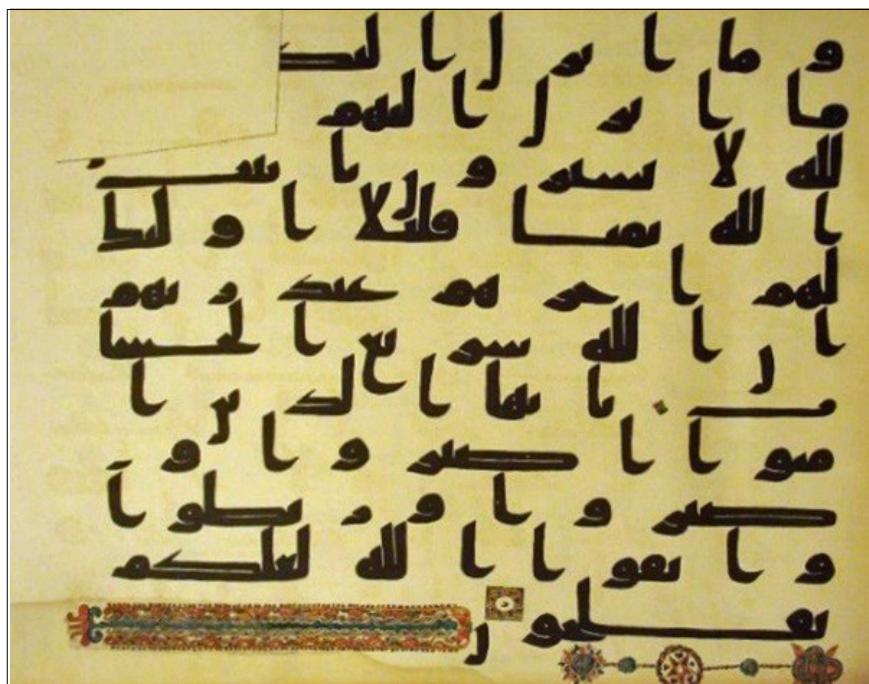 وما انزل اليك
ما انزل اليهم
لله لا يشترون بايت
الله ثمنا قليلا اولئك
لهم اجرهم عند ربهم
ان الله سريع الحسا
ب يايها الذين ا
منوا اصبروا و
صبروا وربطوا
واتقوا الله لعلكم
تفلحون